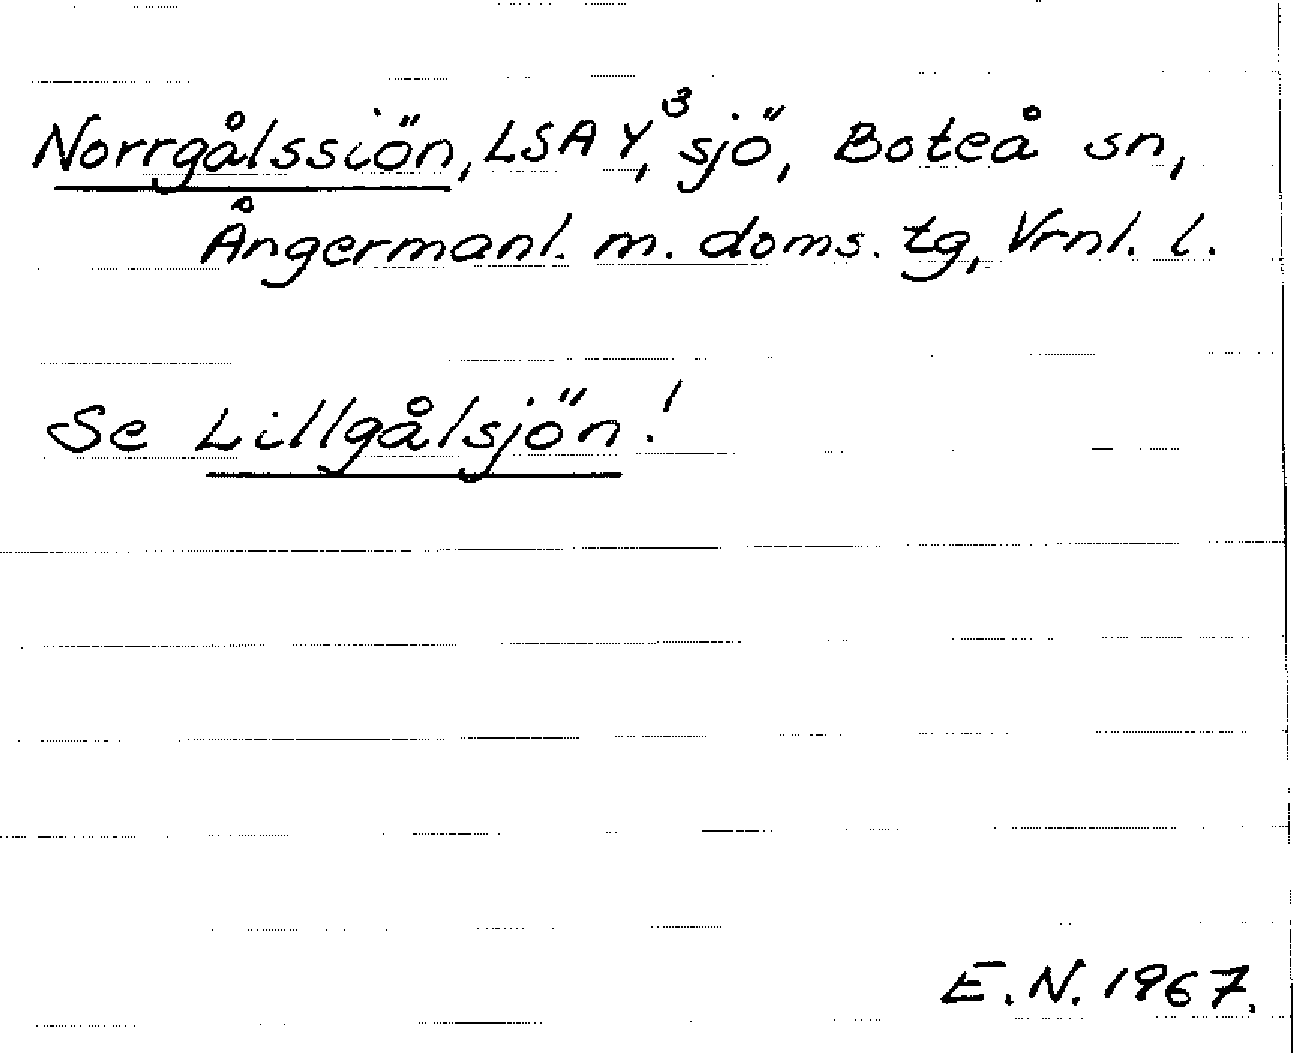 Norrgålssiön, LSA Y³, sjö, Boteå sn,
Ångermanl. m. doms. tg, Vrnl. l.
Se Lillgålsjön!
E.N. 1967.